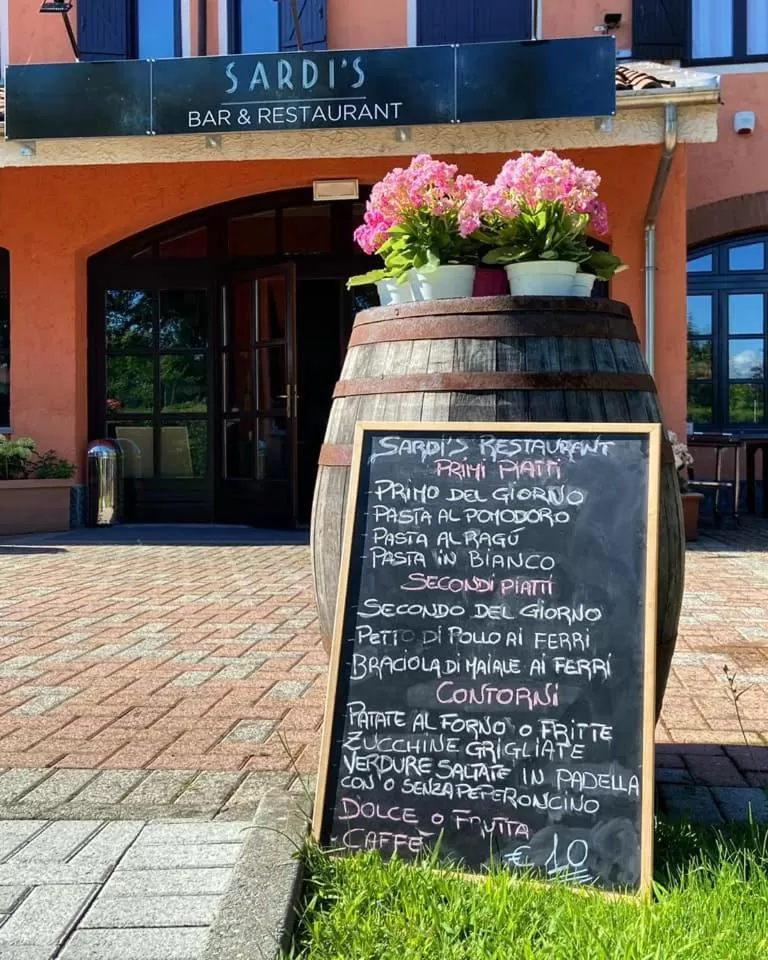 SARDI'S
BAR & RESTAURANT
SARDI'S RESTAURANT
PRIMI PIATTI
- PRIMO DEL GIORNO
- PASTA AL POMODORO
- PASTA AL RAGÚ
- PASTA IN BIANCO
SECONDI PIATTI
- SECONDO DEL GIORNO
- PETTO DI POLLO AI FERRI
- BRACIOLA DI MAIALE AI FERRI
CONTORNI
- PATATE AL FORNO O FRITTE
- ZUCCHINE GRIGLIATE
- VERDURE SALTATE IN PADELLA
CON O SENZA PEPERONCINO
- DOLCE O FRUTTA
- CAFFÈ
€ 10